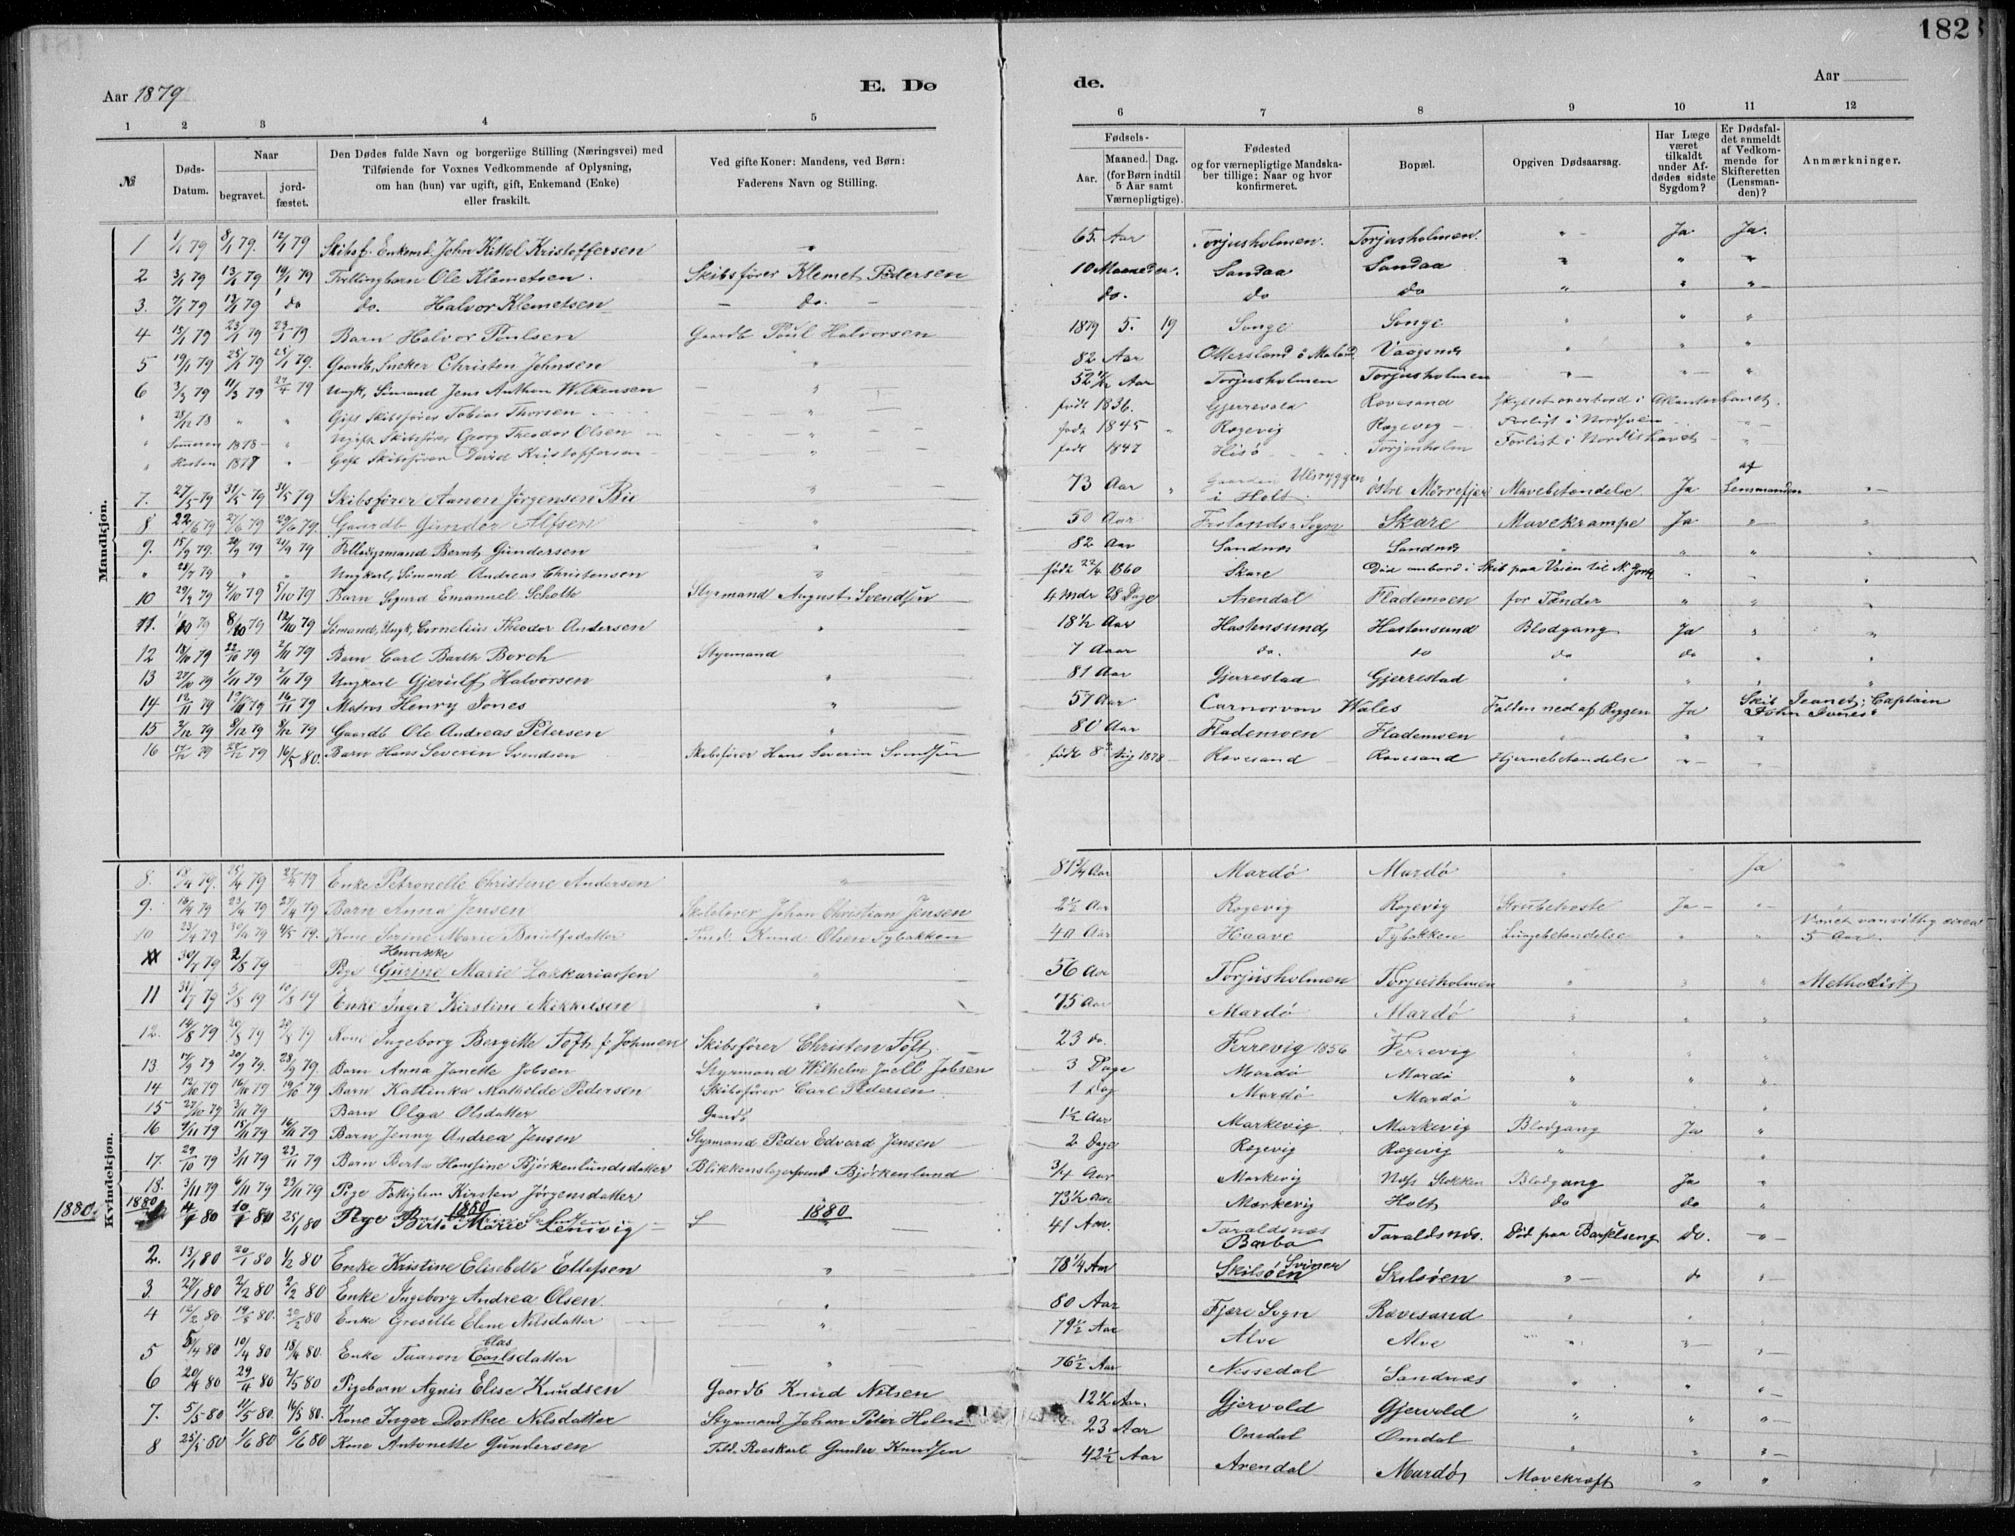 182
Aar 1879
E. Dø
de.
Aar
1 2 3 4 5 6 7 8 9 10 11 12
№
Døds-Datum.
Naar
begravet.
jord-fæstet.
Den Dødes fulde Navn og borgerlige Stilling (Næringsvei) med
Tilføiende for Voxnes Vedkommende af Oplysning,
om han (hun) var ugift, gift, Enkemand (Enke)
eller fraskilt.
Ved gifte Koner: Mandens, ved Børn:
Faderens Navn og Stilling.
Fødsels-
Aar.
Maaned.
Dag.
(for Børn indtil
5 Aar samt
Værnepligtige).
Fødested
og for værnepligtige Mandska-
ber tillige: Naar og hvor
konfirmeret.
Bopæl.
Opgiven Dødsaarsag.
Har Læge
været
tilkaldt
under Af-
dødes sidste
Sygdom?
Er Dødsfal-
det anmeldt
af Vedkom-
mende for
Skifteretten
(Lensman-
den)?
Anmærkninger.
Mandkjøn.
1 1/1 79 8/1 79. 12/1 79 Skibsf. Enkemd. John Kittel Kristoffersen " 65 Aar Torjusholmen. Torjusholmen. " Ja Ja.
2 3/1 79 13/1 79 19/1 79 Tvillingbarn Ole Klemetsen. Skibsfører Klemet Pedersen 10 Maaneder. Sandaa Sandaa " " "
3. 7/1 79 13/1 79 do do. Halvor Klemetsen do. do. do do " " "
4 13/1 79 23/1 79 Barn Halvor Poulsen Gaardb Poul Halvorsen 1879 5. 19 Songe Songe " " "
5 19/1 79 25/1 79 25/1 79. Gaardb, Enker Christen Johnsen " 82 Aar Vaagsnes " " "
6 3/3 79 11/3 79 79 Ungk, Sømand Jens Anthon Wilkensen " 52 Aar Torjusholmen Torjusholmen " " "
" " " Gift Skibsfører Tobias Thorsen født 1836. Gjerrevold Ravesand Skyllet overbord i Atlanterhavet.
" Sommeren 1878 " Ugift Skibsfører Georg Theodor Olsen født 1845 Rægevig Rægevig Forlist i
" Høsten 1877 " Gift Skibsfører David Kristoffersen født 1847 Hisö Torjusholm Forlist i
7. 27/5 79 31/5 79 31/5 79 Skibsfører Aanon Jørgensen Bie " 73 Aar Gaarden Ulsryggen i Holt. østre Mørrefjær Mavebetændelse Ja af Lensmanden
8 22/6 79 27/6 79 29/6 79. Gaardb Gunder Alfsen " 50 Aar Frolands Sogn Skare Mavekrampe Ja " "
9. 15/9 79. 20/9 79 21/9 79 Fellesmand Bernt Gundersen " 82 Aar Sandnæs Sandnæs " " "
" 23/7 79 " " Ungkarl, Sømand Andreas Christensen " født 22/4 1860 Skare Død ombord i Skib paa Veien til N. York
10 29/9 79 4/10 79 5/10 79 Barn Sigurd Emanuel Scholle Styrmand August Svendsen 4 Mdr 28 Dage Arendal Flademoen for Tænder " "
11. 79 8/10 79 12/10 79 Sømand, Ungk, Cornelius Theodor Andersen " 18½ Aar Hastensund, Hastensund Blodgang Ja " "
12 18/10 79 22/10 79 2/11 79 Barn Carl Barth Borch Styrmand 7 Aar do. do do do "
13 27/10 79 1/11 79 2/11 79 Ungkarl Gjerulf Halvorsen " 81 Aar Gjerrestad Gjerrestad " " "
14 12/11 79 79 16/11 79 Matros Henry Jones " 57 Aar Carnorvon Wales Falden ned af Ryggen Ja Skib Jeanet; Captain John Jones
15 3/12 79 8/12 79 8/12 79 Gaardb Ole Andreas Petersen " 80 Aar Flademoen Flademoen " " "
16 17/12 79 22/12 79 16/5 80. Barn Hans Severin Svendsen Skibsfører Hans Severin Svendsen født 8de Aug 1878 Ravesand Ravesand Hjernebetændelse
Kvindekjøn.
8. 18/4 79. 25/4 79 27/4 79 Enke Petronelle Christine Andersen " 81¾ Aar Mardö Mardö " Ja "
9. 16/4 79 23/4 79 27/4 79 Barn Anna Jensen Skolelærer Johan Christian Jensen 2½ Aar Rægevig Rægevig Strubehoste Ja " "
10 23/4 79 30/4 79 4/5 79. Kone Serine Marie Knud Olsen Tybakken 40 Aar Haave Tybakken Lungebetændelse " " Været vanvittig circa 5 Aar.
30/7 79 2/8 79 Pige Henrikke Gurine Marie Zakkariassen " 56 Aar Torjusholmen Torjusholmen " " " Methodist
11 31/7 79 5/8 79 10/8 79 Enke Inger Kirstine Mikkelsen " 75 Aar Mardö Mardö " " "
12. 14/8 79 20/8 79 79 Kone Ingeborg Bergitte Toft f. Johnsen Skibsfører Christen Toft. 23 do. Færrevig 1856 Færrevig " " "
13. 17/9 79 20/9 79. 28/9 79. Barn Anna Janette Jobsen Styrmand Wilhelm Joell Jobsen 3 Dage Mardö Mardö " " "
14 12/10 79 16/10 79 19/10 79 Barn Kattinka Mathilde Pedersen Skibsfører Carl Pedersen 1 Dag Mardö Mardö " "
15 27/10 79 3/11 79 Barn Olga Olsdatter Gaardb 1½ Aar Markevig Markevig Blodgang Ja "
16 9/11 79 15/11 79 16/11 79 Barn Jenny Andrea Jensen Styrmand Peder Edvard Jensen 2 Dage Rægevig Rægevig " "
17. 29/10 79 3/11 79 23/11 79 Barn Berta Hansine Bjørkenlundsdatter Blikkenslagersvend Bjørkenlund ¾ Aar Markevig Næs Stokken Blodgang Ja "
18. 3/11 79 6/11 79 23/11 79 Pige Kirsten Jørgensdatter 73½ Aar Markevig Holt do do "
1880. 1880 1880 1880
14/1 80 10/1 80 25/1 80 Pige Berte Marie Lenivig 41 Aar. Taraldsnæs Barbo Taraldsnæs. Død paa Barselseng do. "
2. 13/1 80 20/1 80 1/2 80 Enke Kristine Elisebeth Ellefsen " 78¼ Aar Skilsöen Svinør Skilsöen " do "
3. 27/1 80 2/2 80 2/2 80 Enke Ingeborg Andrea Olsen. " 80 Aar Fjære Sogn Ravesand " " "
4 12/2 80 19/2 80. 20/2 80 Enke Gresille Elene Nilsdatter " 79½ Aar Alve Alve " " "
5 5/4 80 10/4 80 18/4 80. Enke Taaran Clas Carlsdatter " 76½ Aar Nissedal Sandnæs " "
6 20/4 80 29/4 80 2/5 80 Pigebarn Agnis Elise Knudsen Gaardb Knud Nilsen 12½ Aar. Gjervold Gjervold " " "
7. 5/5 80 11/5 80. 16/5 80. Kone Inger Dorthee Nilsdatter Styrmand Johan Peter Holm 23 Aar Omdal Omdal " " "
8 25/5 80 1/6 80 6/6 80 Kone Antonette Gundersen Gunder Knudsen 42½ Aar Arendal Mardö, Mavekræft " "